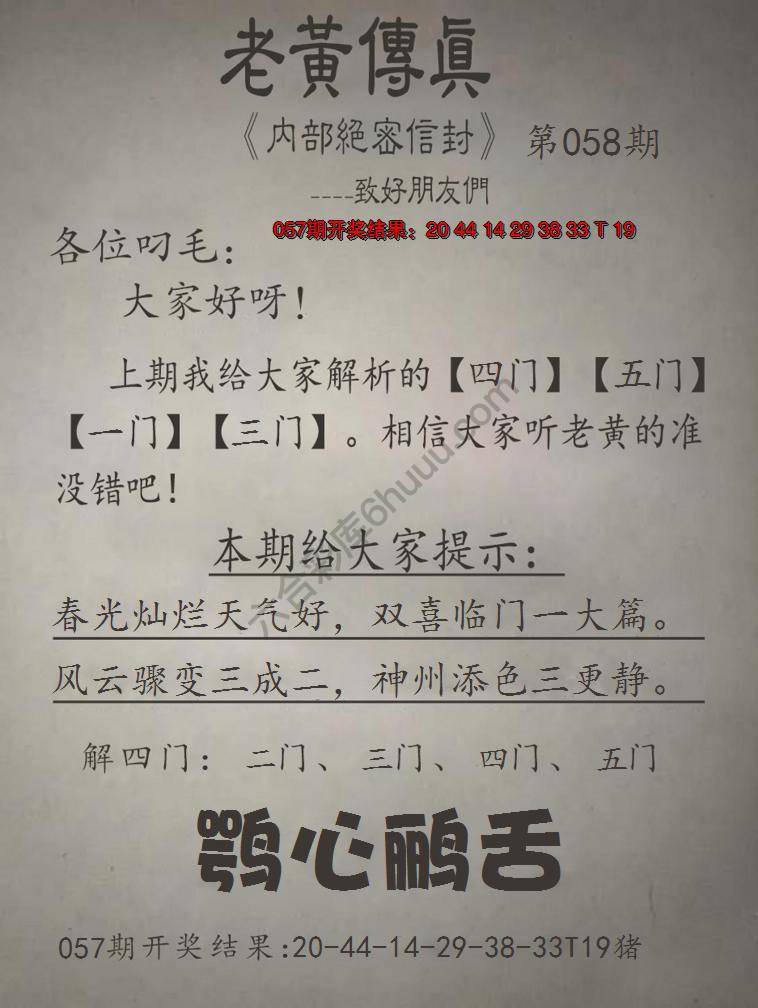 老黃傳眞
《内部絕密信封》 第058期
----致好朋友們
057期开奖结果：20 44 14 29 38 33 T 19
各位叼毛：
大家好呀！
上期我给大家解析的【四门】【五门】
【一门】【三门】。相信大家听老黄的准
没错吧！
本期给大家提示：
春光灿烂天气好，双喜临门一大篇。
风云骤变三成二，神州添色三更静。
解四门： 二门、 三门、 四门、 五门
鹗心鹂舌
057期开奖结果:20-44-14-29-38-33T19猪
六合彩库6huuu.com